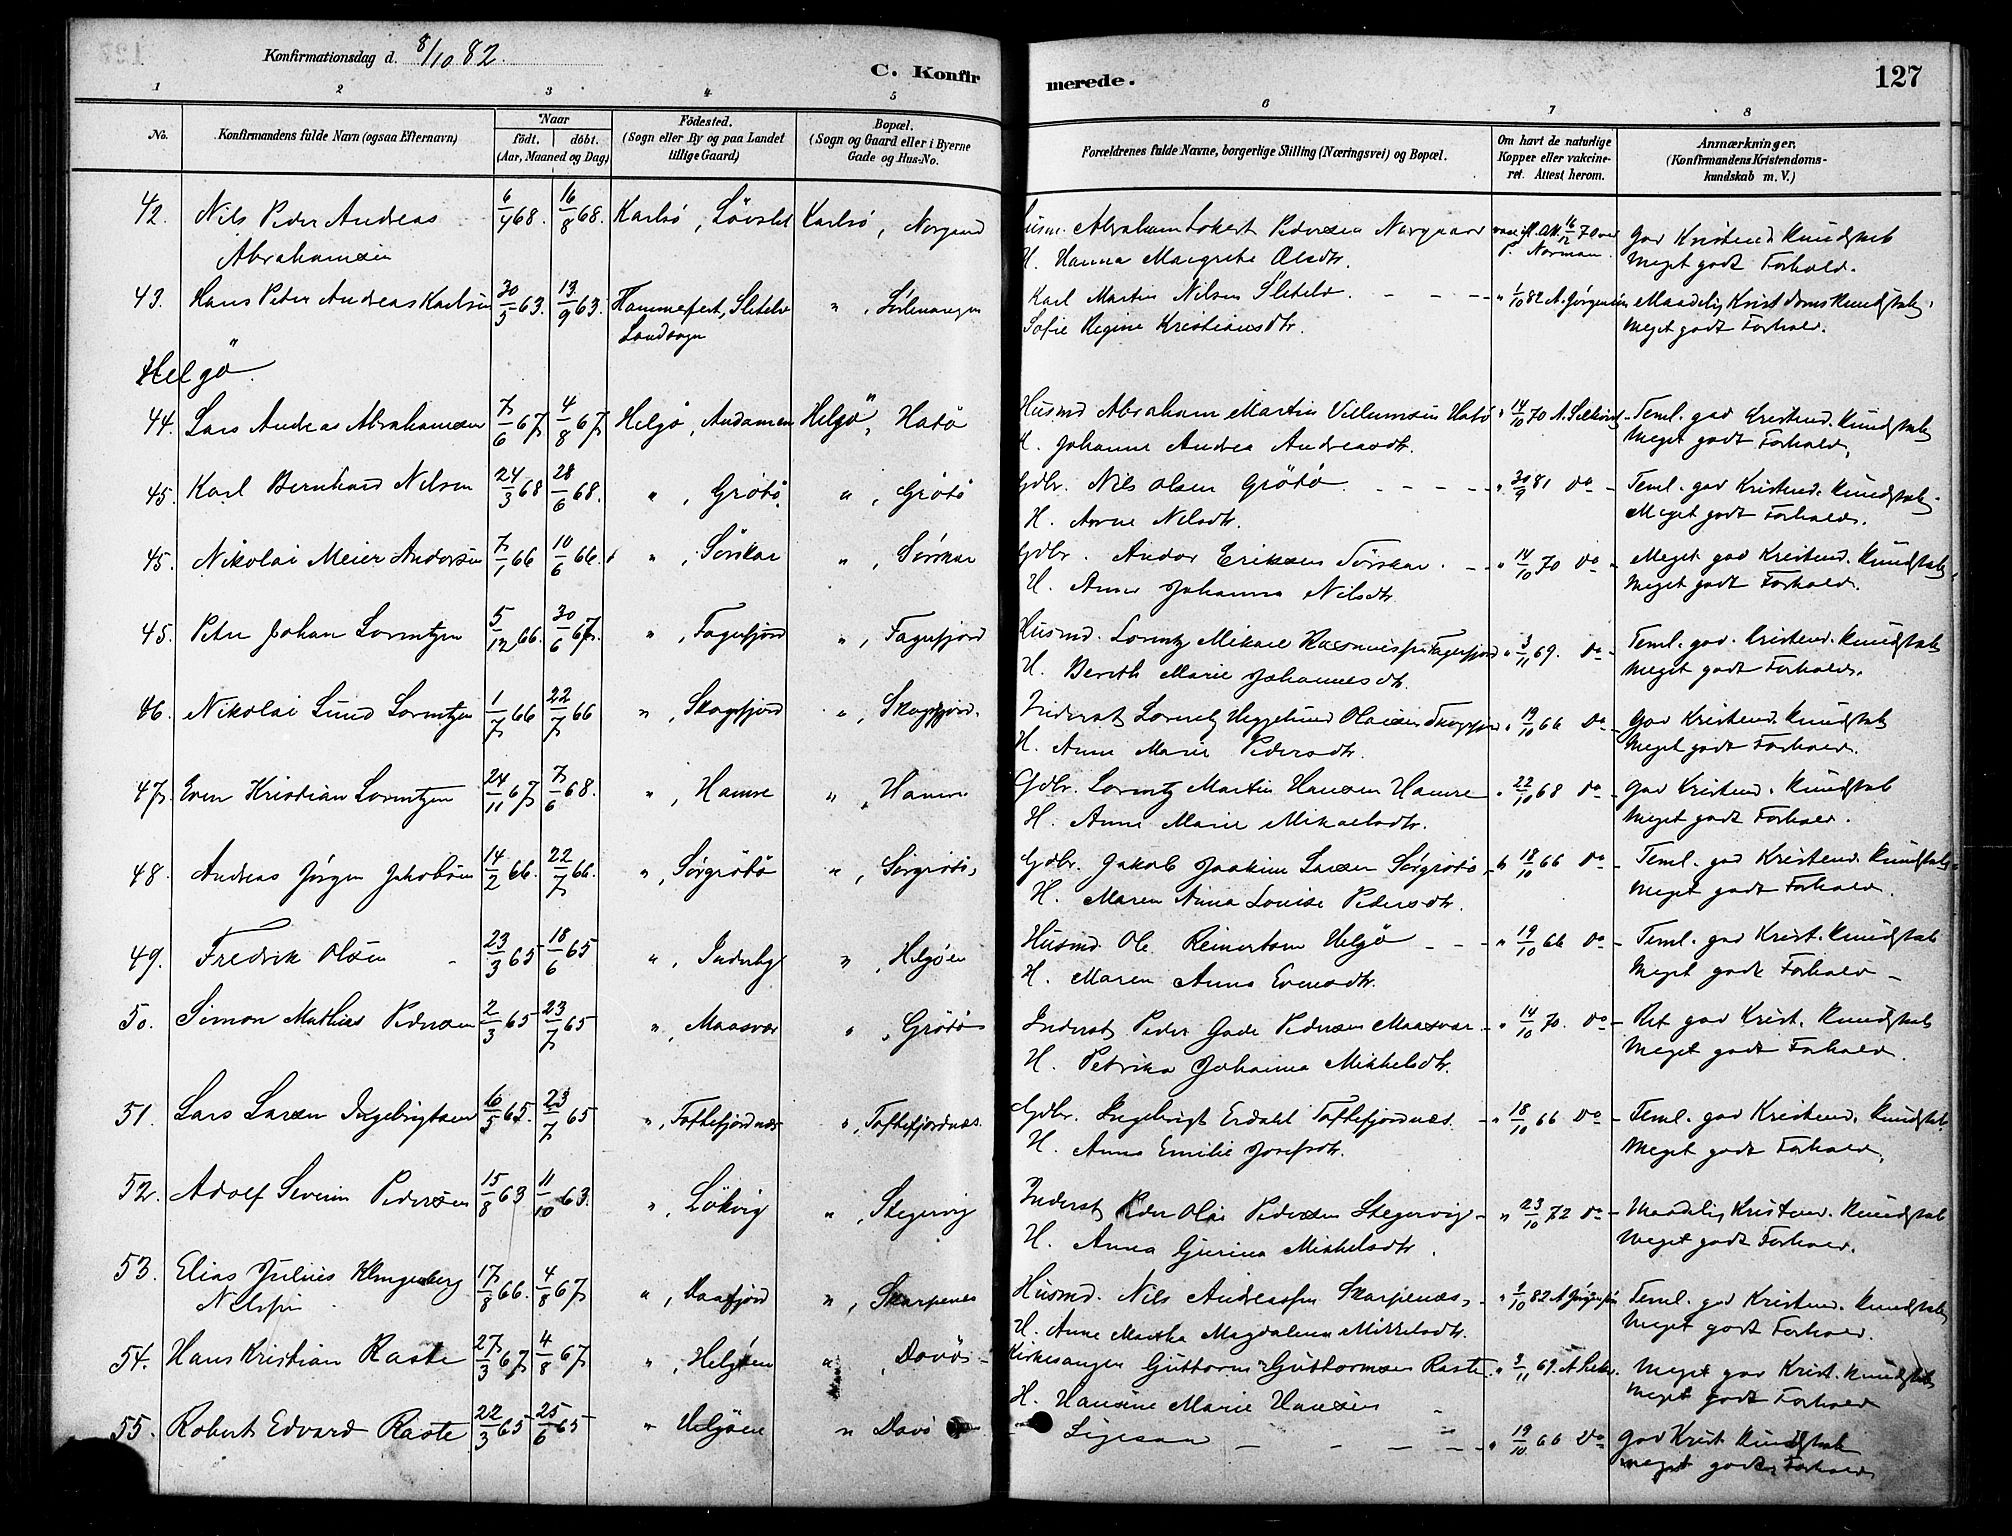 Konfirmationsdag d. 8/10 82.
C. Konfirmerede.
127
1 2 3 4 5 6 7 8
No.
Konfirmandens fulde Navn (ogsaa Efternavn)
Naar
födt. döbt.
(Aar, Maaned og Dag)
Födested.
(Sogn eller By og paa Landet tillige Gaard)
Bopæl.
(Sogn og Gaard eller i Byerne Gade og Hus-No.
Forældrenes fulde Navne, borgerlige Stilling (Næringsvei) og Bopæl.
Om havt de naturlige Kopper eller vakcineret. Attest herom.
Anmærkninger.
(Konfirmandens Kristendomskundskab m. V.)
42. Nils Peder Andreas 6/4 68. 16/8 68. Karlsö, Karlsö, Norgaard Husm. Abraham Pedersen Norgaard 16/12 70 God Kristend. Kundskab
Abrahamsen P. Norman H. Hanna Margrethe Olsdtr. Meget godt Forhold.
43. Hans Peter Andreas Karlsen 30/5 63. 13/9 63. Hammerfest, Sletelv " , Karl Martin Nilsen Sletelv. - - - " 1/10 82 A. Jørgensen Maadelig Kristdomskundskab,
Landsogn Sofie Regine Kristiansdtr. Meget godt Forhold.
Helgö
44. Lars Andreas Abrahamsen 7/6 67 4/8 67 Helgö, Andamen Helgö, Hatö Husmd Abraham Martin Villumsen Hatö " 14/10 70 Teml. god Kristend. Kundskab
H. Johanne Andrea Andreasdtr. Meget godt Forhold,
45. Karl Bernhard Nilsen 24/3 68 28/6 68. " , Grötö " , Grötö Gdbr. Nils Olsen Grötö. - - - " 30/9 81 Do - Teml. god Kristend. Kundskab
H. Nilsdtr. Meget godt Forhold.
45. Nikolai Meier Andersen 7/1 66 10/6 66. " , Sörskar " , Sörskar Gdbr. Andor Eriksen Sörskar. - " 14/10 70 Do - Meget god Kristend. Kundskab
H. Anne Johanna Nilsdtr. Meget godt Forhold.
45. Peter Johan Lorentzen 5/12 66. 30/6 67. " , Fagerfjord " , Fagerfjord Husmd. Lorentz Mikael Rasmussen Fagerfjord " 3/11 69. Do - Teml. god. Kristend. Kundskab
H. Berith Marie Johannesdtr. Meget godt Forhold.
46. Nikolai Lund Lorentzen 1/7 66 22/7 66 " , Skogsfjord " , Skogsfjord. Inderst Lorentz Heggelund Olaisen Skogsfjord " 19/10 66 Do - God Kristend. Kundskab
H. Anne Marie Pedersdtr. Meget godt Forhold.
47. Even Kristian Lorentzen 24/11 67 7/6 68. " , Hamre " , Hamre Gdbr. Lorentz Martin Hansen Hamre " 22/10 68 Do - God Kristend. Kundskab
H. Anne Marie Mikaelsdtr. Meget godt Forhold.
48. Andreas Jörgen Jakobsen 14/2 66. 22/7 66. " , Sørgrötö " , Sørgrötö, Gdbr. Jakob Joakim Larsen Sørgrötö, " 18/10 66 Do - Teml. god Kristend. Kundskab
H. Maren Anna Louise Pedersdtr. Meget godt Forhold.
49. Fredrik Olsen 23/3 65 18/6 65 " , Inderby " , Helgøen Husmd. Ole Reinertsen Helgö - - " 19/10 66 Do - Teml. god Krist. Kundskab
H. Maren Anna Evensdtr. Meget godt Forhold -
50. Simon Mathias Pedersen 2/3 65 23/7 65 " , Maasvær " , Grötö Inderst Peder Gade Pedersen Maasvær - " 14/10 70. Do - Ret god Krist. Kundskab
H. Petrika Johanna Mikkelsdtr. Meget godt Forhold.
51. Lars Larsen Ingebrigtsen 16/5 65. 23/7 65 " , Toftefjordnæs " , Toftefjordnæs. Gdbr. Ingebrigt Erdahl Toftefjordnæs. - " 18/10 66 Do - Teml. god Kristend. Kundskab.
H. Anna Emilie Josefsdtr. Meget godt Forhold,
52. Adolf Severin Pedersen 15/8 63 11/10 63. " , Lökvig " , Stegervig Inderst Peder Olai Pedersen Stegervig - " 23/10 72 Do - Maadelig Kristend. Kundskab
H. Anna Gjerina Mikkelsdtr. Meget godt Forhold.
53. Elias Julius Klingenberg 17/8 66. 4/8 67 " , Daafjord " , Skarpenes Husmd. Nils Andreassen Skarpenæs, - " 1/10 82 A Jørgensen Teml. god Kristend. Kundskab
Nilssen H. Anne Martha Magdalena Mikkelsdtr. Meget godt Forhold.
54. Hans Kristian Raste 27/3 67 4/8 67 " , Helgøen " , Davö - Kirkesanger Guttorm Guttormsen Raste. " 3/11 69. Meget god Krist. Kundskab
H. Hansine Marie Hansen Meget godt Forhold
55. Robert Edvard Raste 22/3 65 25/6 65 " Helgøen " Davö Ligesaa - - - - " 19/10 66 Do God Krist Kundskab
Meget godt Forhold